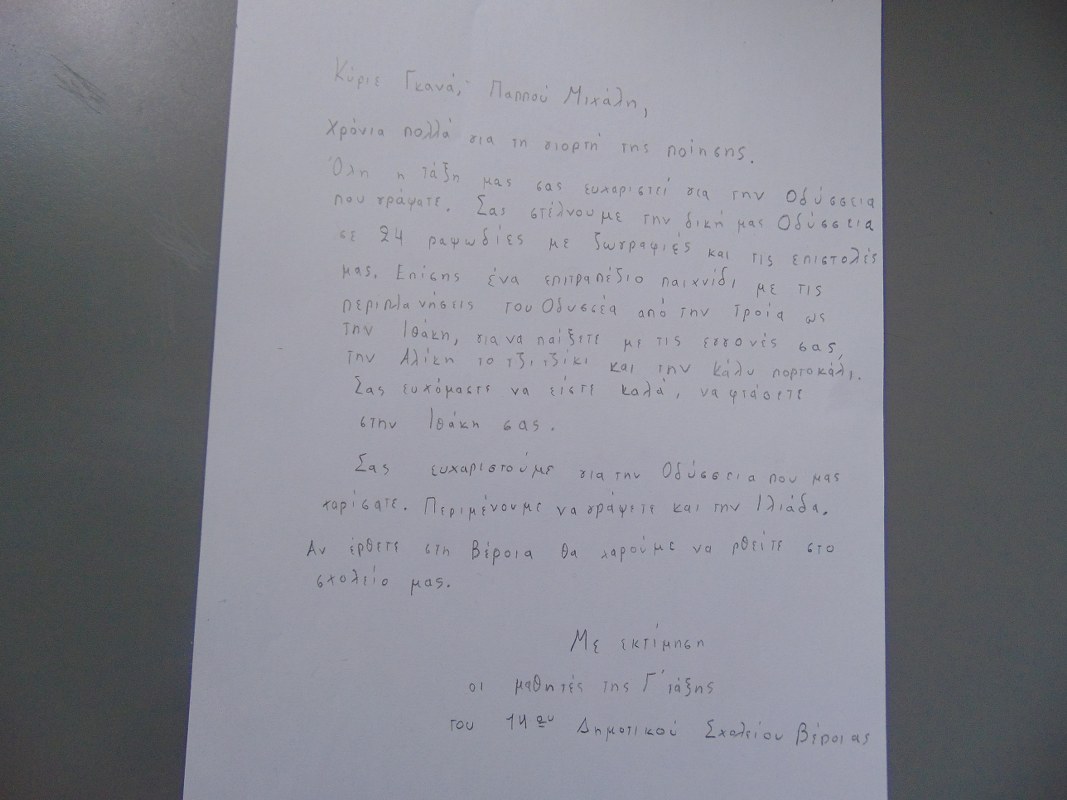 Κύριε Γκανά, Παππού Μιχάλη,
Χρόνια πολλά για τη γιορτή της ποίησης.
Όλη η τάξη μας σας ευχαριστεί για την Οδύσσεια
που γράψατε. Σας στέλνουμε την δική μας Οδύσσεια
σε 24 ραψωδίες με ζωγραφιές και τις επιστολές
μας. Επίσης ένα επιτραπέζιο παιχνίδι με τις
περιπλανήσεις του Οδυσσέα από την Τροία ως
την Ιθάκη, για να παίξετε με τις εγγονές σας,
την Αλίκη το τζιτζίκι και την Κάλυ πορτοκάλι.
Σας ευχόμαστε να είστε καλά, να φτάσετε
στην Ιθάκη σας.
Σας ευχαριστούμε για την Οδύσσεια που μας
χαρίσατε. Περιμένουμε να γράψετε και την Ιλιάδα.
Αν έρθετε στη Βέροια θα χαρούμε να ρθείτε στο
σχολείο μας.
Με εκτίμηση
οι μαθητές της Γ΄τάξης
του 14ου Δημοτικού Σχολείου Βέροιας